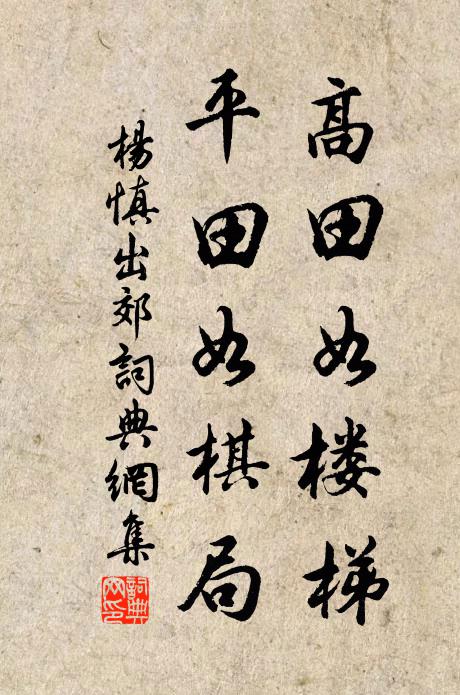 高田如楼梯
平田如棋局
楊慎出郊詞典網集
詞典
网印